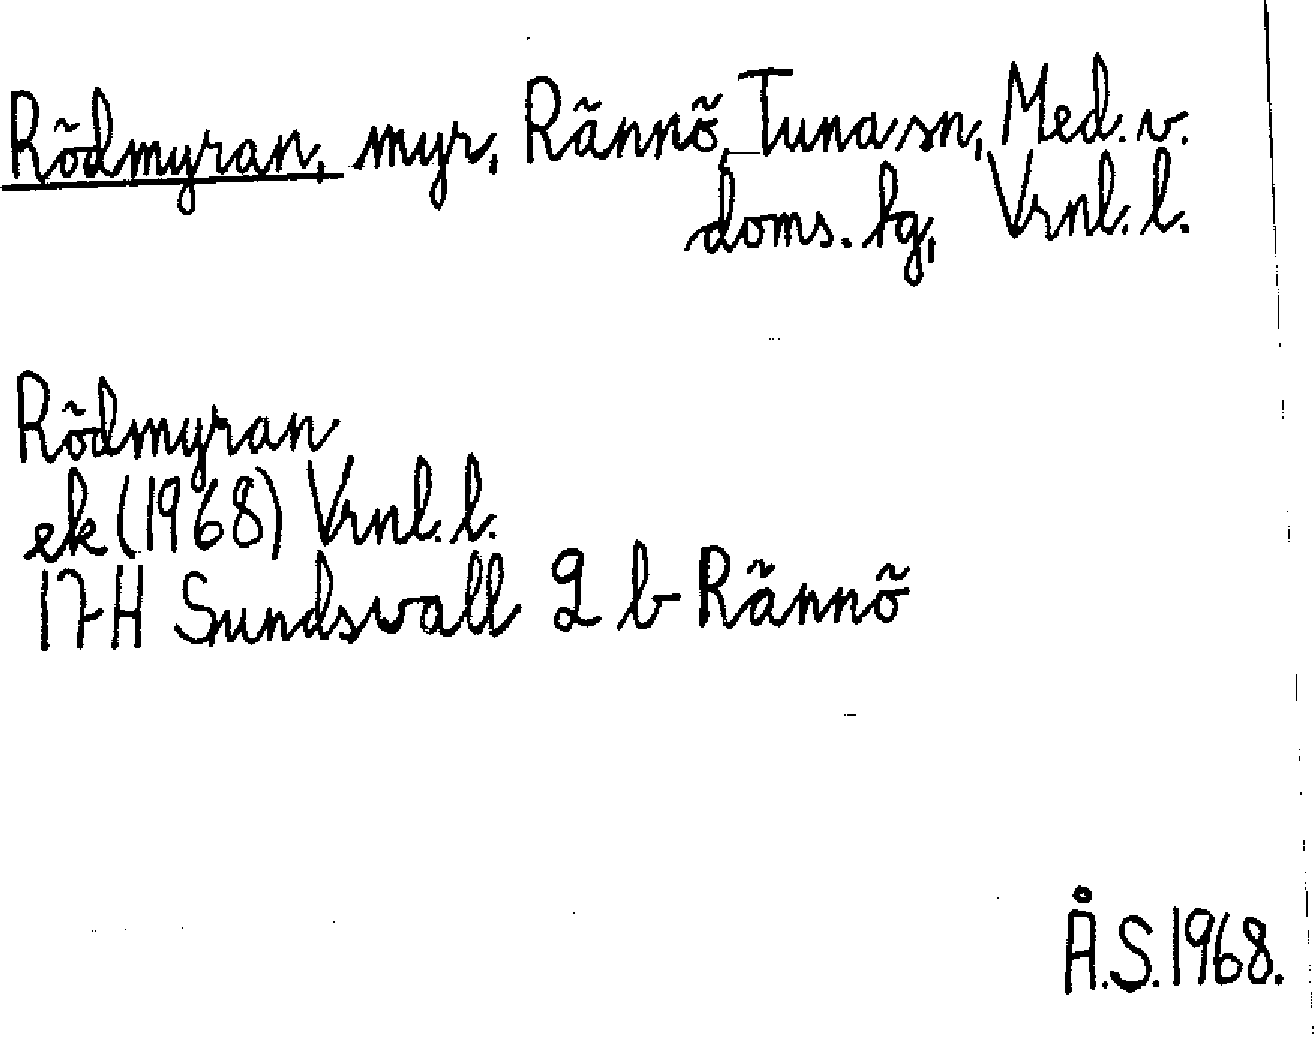 Rödmyran, myr, Rännö, Tuna sn, Med. v.
doms. lg, Vrnl. l.
Rödmyran
ek (1968) Vrnl. l.
17H Sundsvall 2 b Rännö
Å.S. 1968.